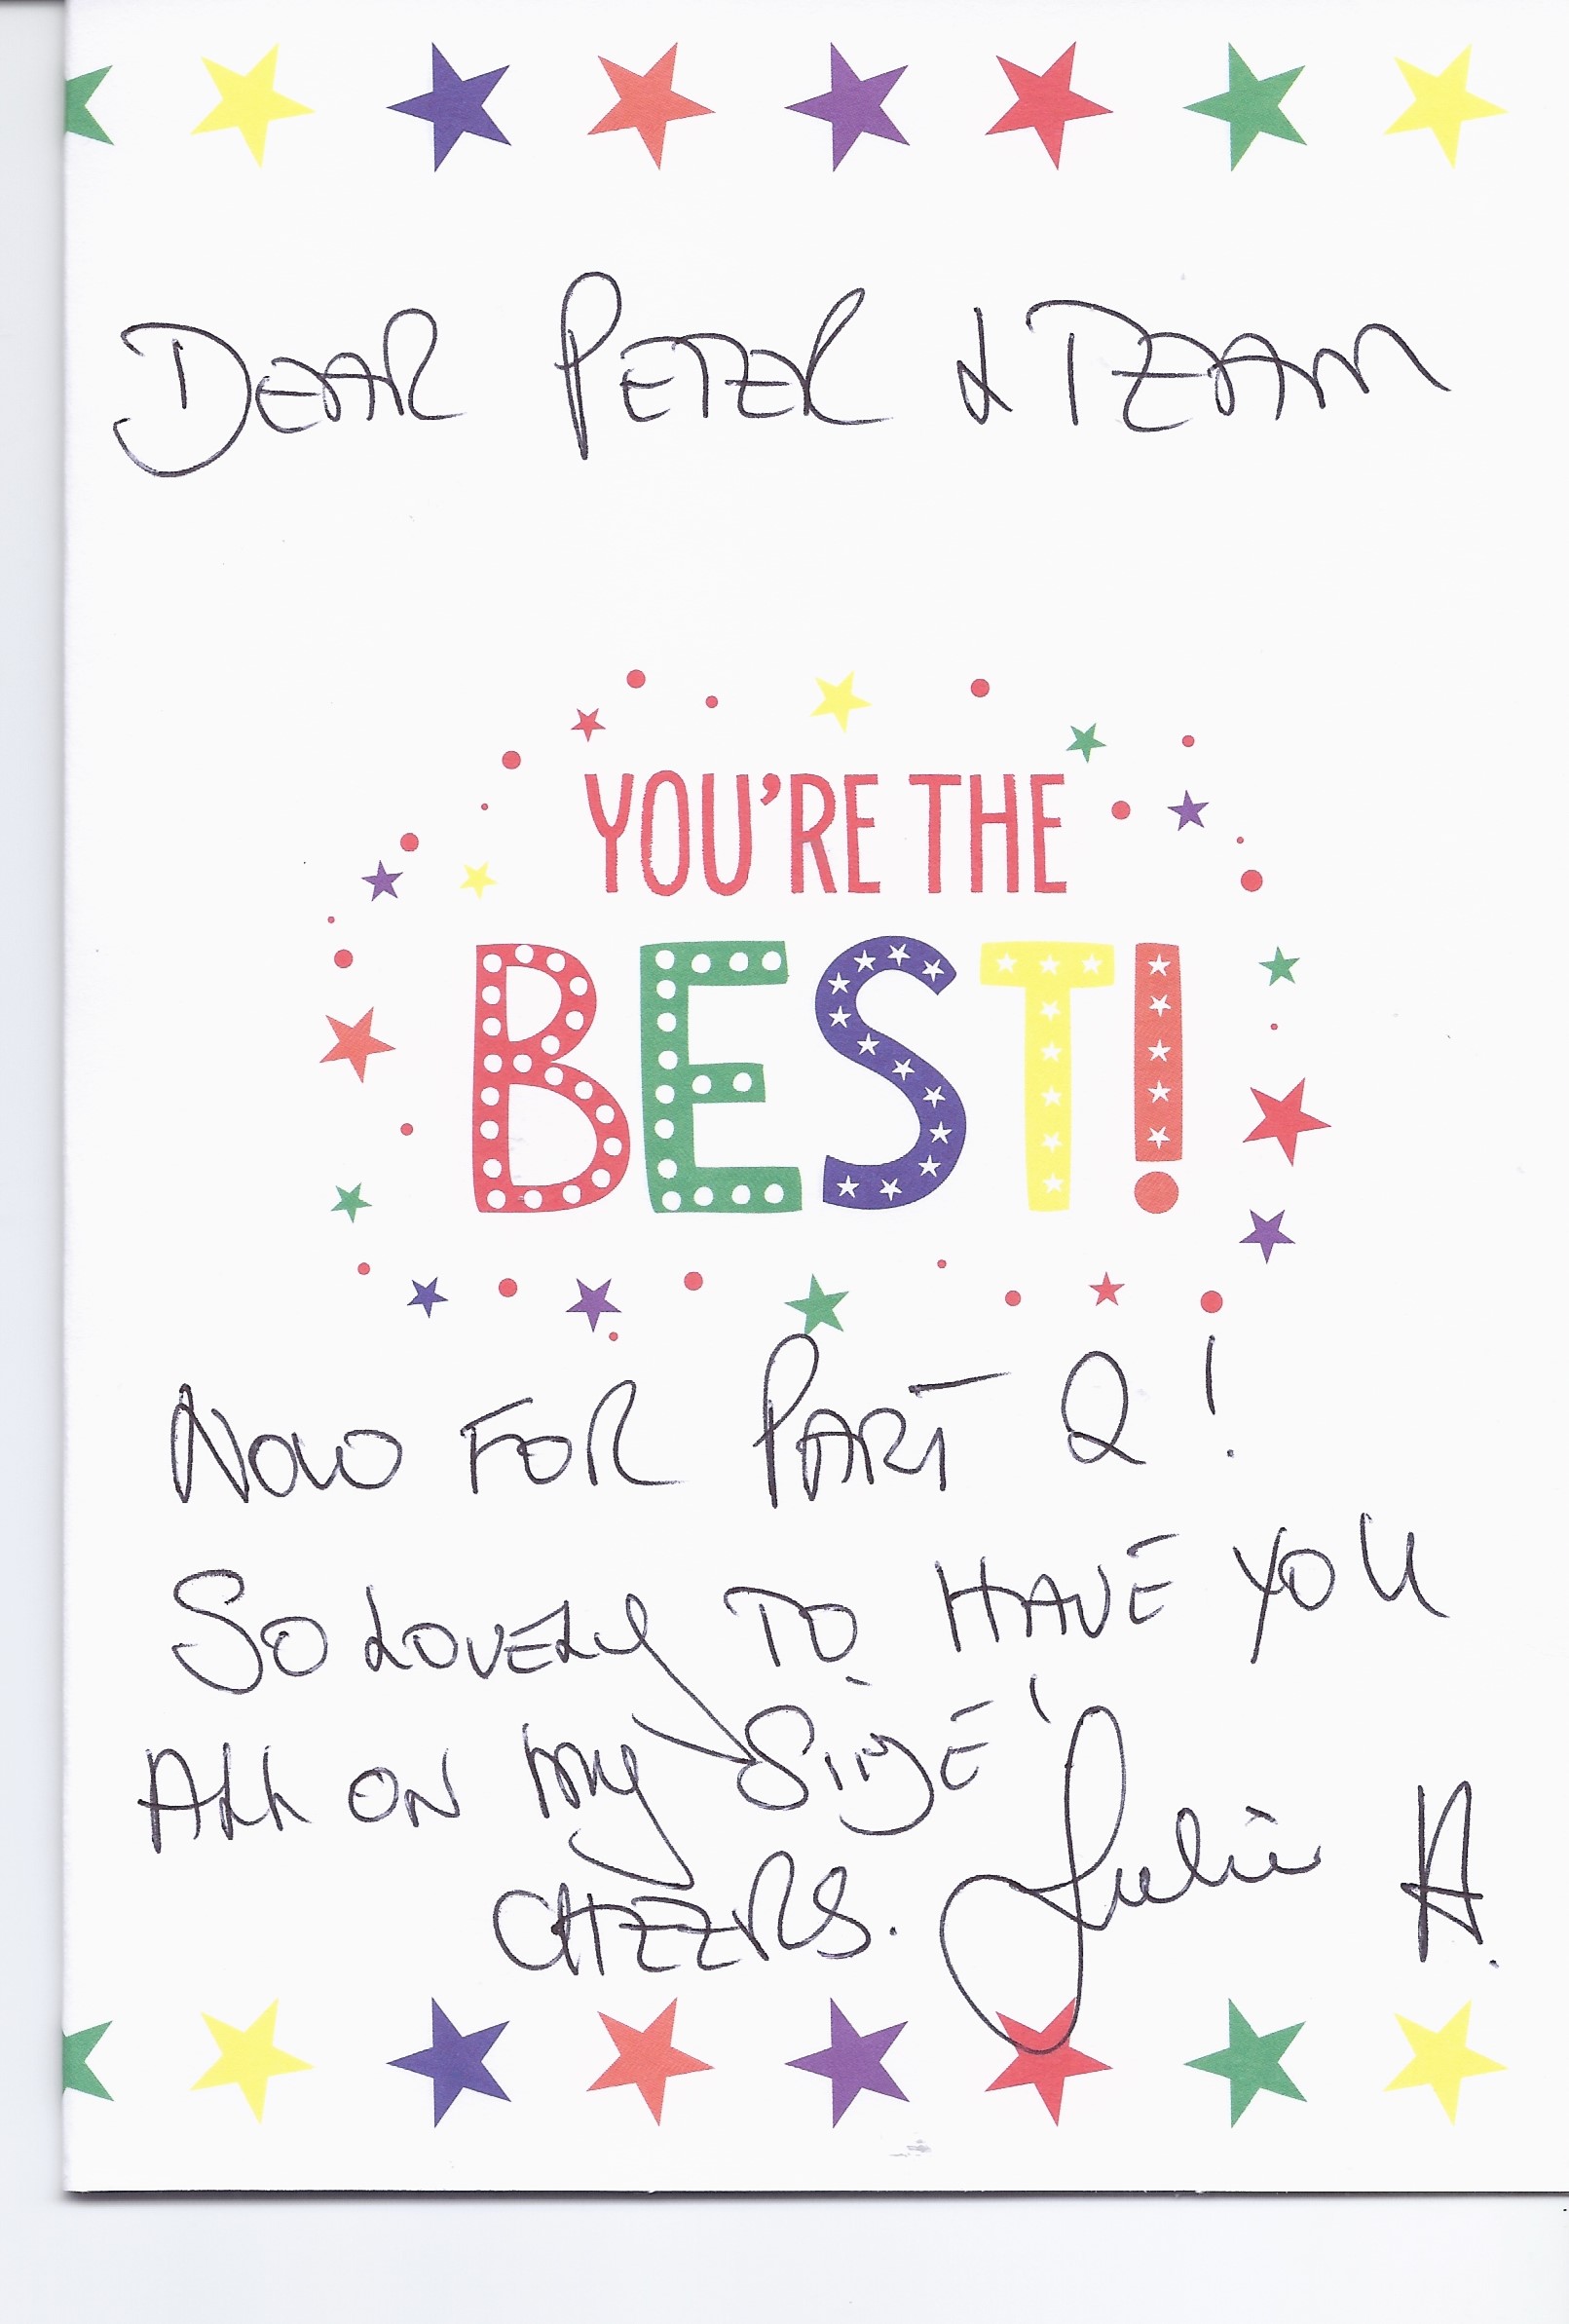 DEAR PETER & TEAM
YOU'RE THE
BEST!
NOW FOR PART 2!
SO LOVELY TO HAVE YOU
ALL ON MY SIDE!
CHEERS. Julie A.